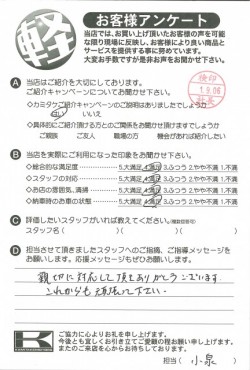 軽
お客様アンケート
当店では、お買い上げ頂いたお客様の声を可能
な限り現場に反映し、お客様により良い商品と
サービスを提供する事に努めています。
大変お手数ですが是非お声をお聞かせ下さい。
A 当店はご紹介を大切にしております。
ご紹介キャンペーンについてお聞かせ下さい。
検印
1.9.06
・カミタケご紹介キャンペーンのご説明はありましたでしょうか
はい いいえ
・具体的にご紹介頂ける方とのご関係をお聞かせ頂けますでしょうか
ご親族 ご友人 職場の方 機会があれば紹介したい
B 当店を実際にご利用になられた印象をお聞かせ下さい。
・総合的な満足度 5.大満足 4.満足 3.ふつう 2.やや不満 1.不満
・スタッフの対応 5.大満足 4.満足 3.ふつう 2.やや不満 1.不満
・お店の雰囲気、清掃 5.大満足 4.満足 3.ふつう 2.やや不満 1.不満
・納車時のお車の状態 5.大満足 4.満足 3.ふつう 2.やや不満 1.不満
C 評価したいスタッフがいれば教えてください。(複数回答可)
スタッフ名( )( )( )
D 担当させて頂きましたスタッフへのご指摘、ご指導メッセージを
お願いします。応援メッセージもぜひお願いします。
親切に対応して頂きありがとうございます
これからも頑張って下さい
K
ご協力に心よりお礼を申し上げます。
今後とも宜しくお引き立てご愛顧の程お願い申し上げます。
またのご来店を心からお待ちしております。
担当( 小泉 )